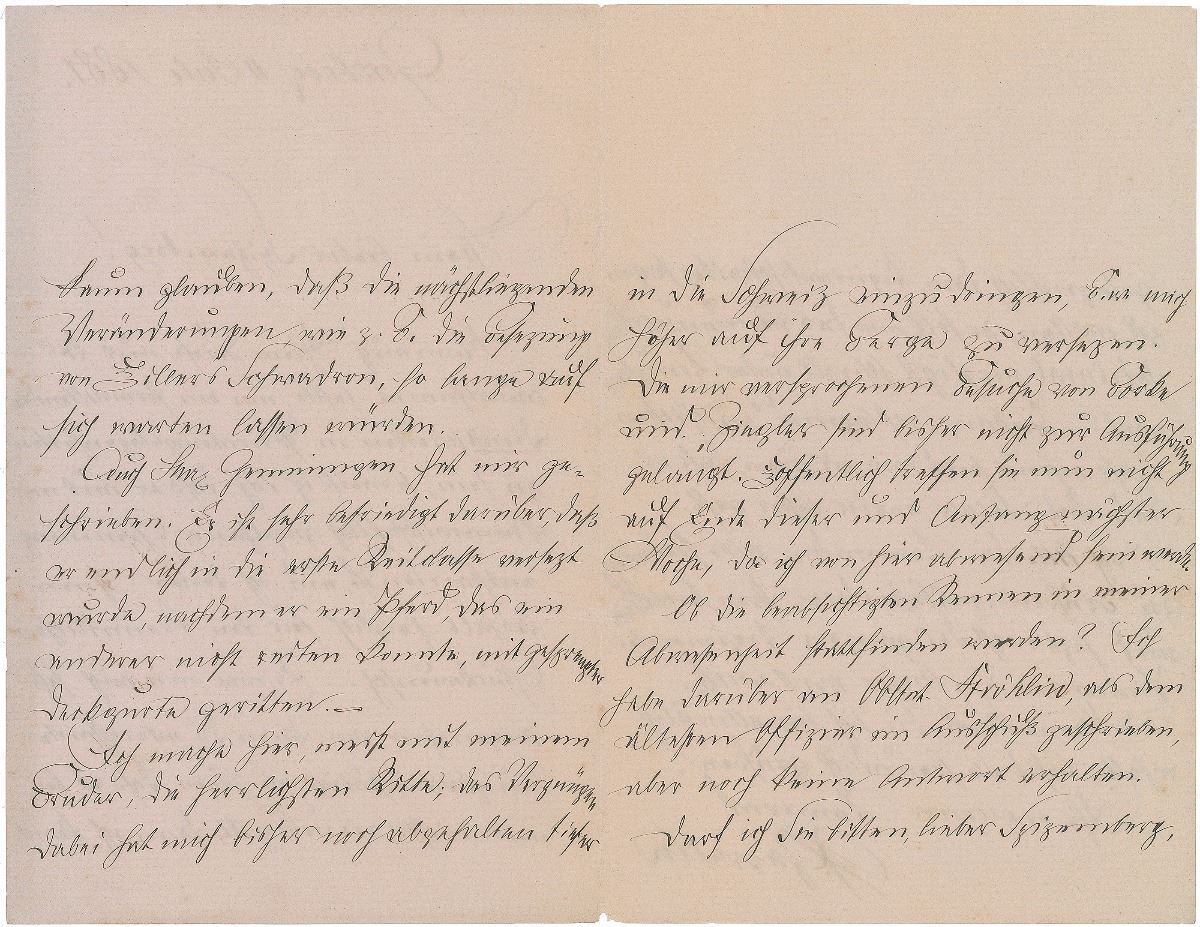 kaum glauben, daß die nächstliegenden
Veränderungen, wie z. B. die Besezung
von Hillers Schwadron, so lange auf
sich warten lassen würden.
Auch Max Gemmingen hat mir ge-
schrieben. Er ist sehr befriedigt darüber, daß
er endlich in die erste Reitclasse versezt
wurde, nachdem er ein Pferd, das ein
anderer nicht reiten konnte, mit gesprengter
Deckgurte geritten. —
Ich mache hier, meist mit meinem
Bruder, die herrlichsten Ritte; das Vergnügen
dabei hat mich bisher noch abgehalten tiefer
in die Schweiz einzudringen, u. mich
höher auf ihre Berge zu versezen.
Die mir versprochenen Besuche von
und Ziegler sind bisher nicht zur Ausführung
gelangt. Hoffentlich treffen sie nun nicht
auf Ende dieser und Anfang nächster
Woche, da ich von hier abwesend sein werde.
Ob die beabsichtigten Rennen in meiner
Abwesenheit stattfinden werden? Ich
habe darüber an Obstlt. Ströhlin, als dem
ältesten Offizier im Ausschuß geschrieben,
aber noch keine Antwort erhalten.
Darf ich Sie bitten, lieber Spizemberg,